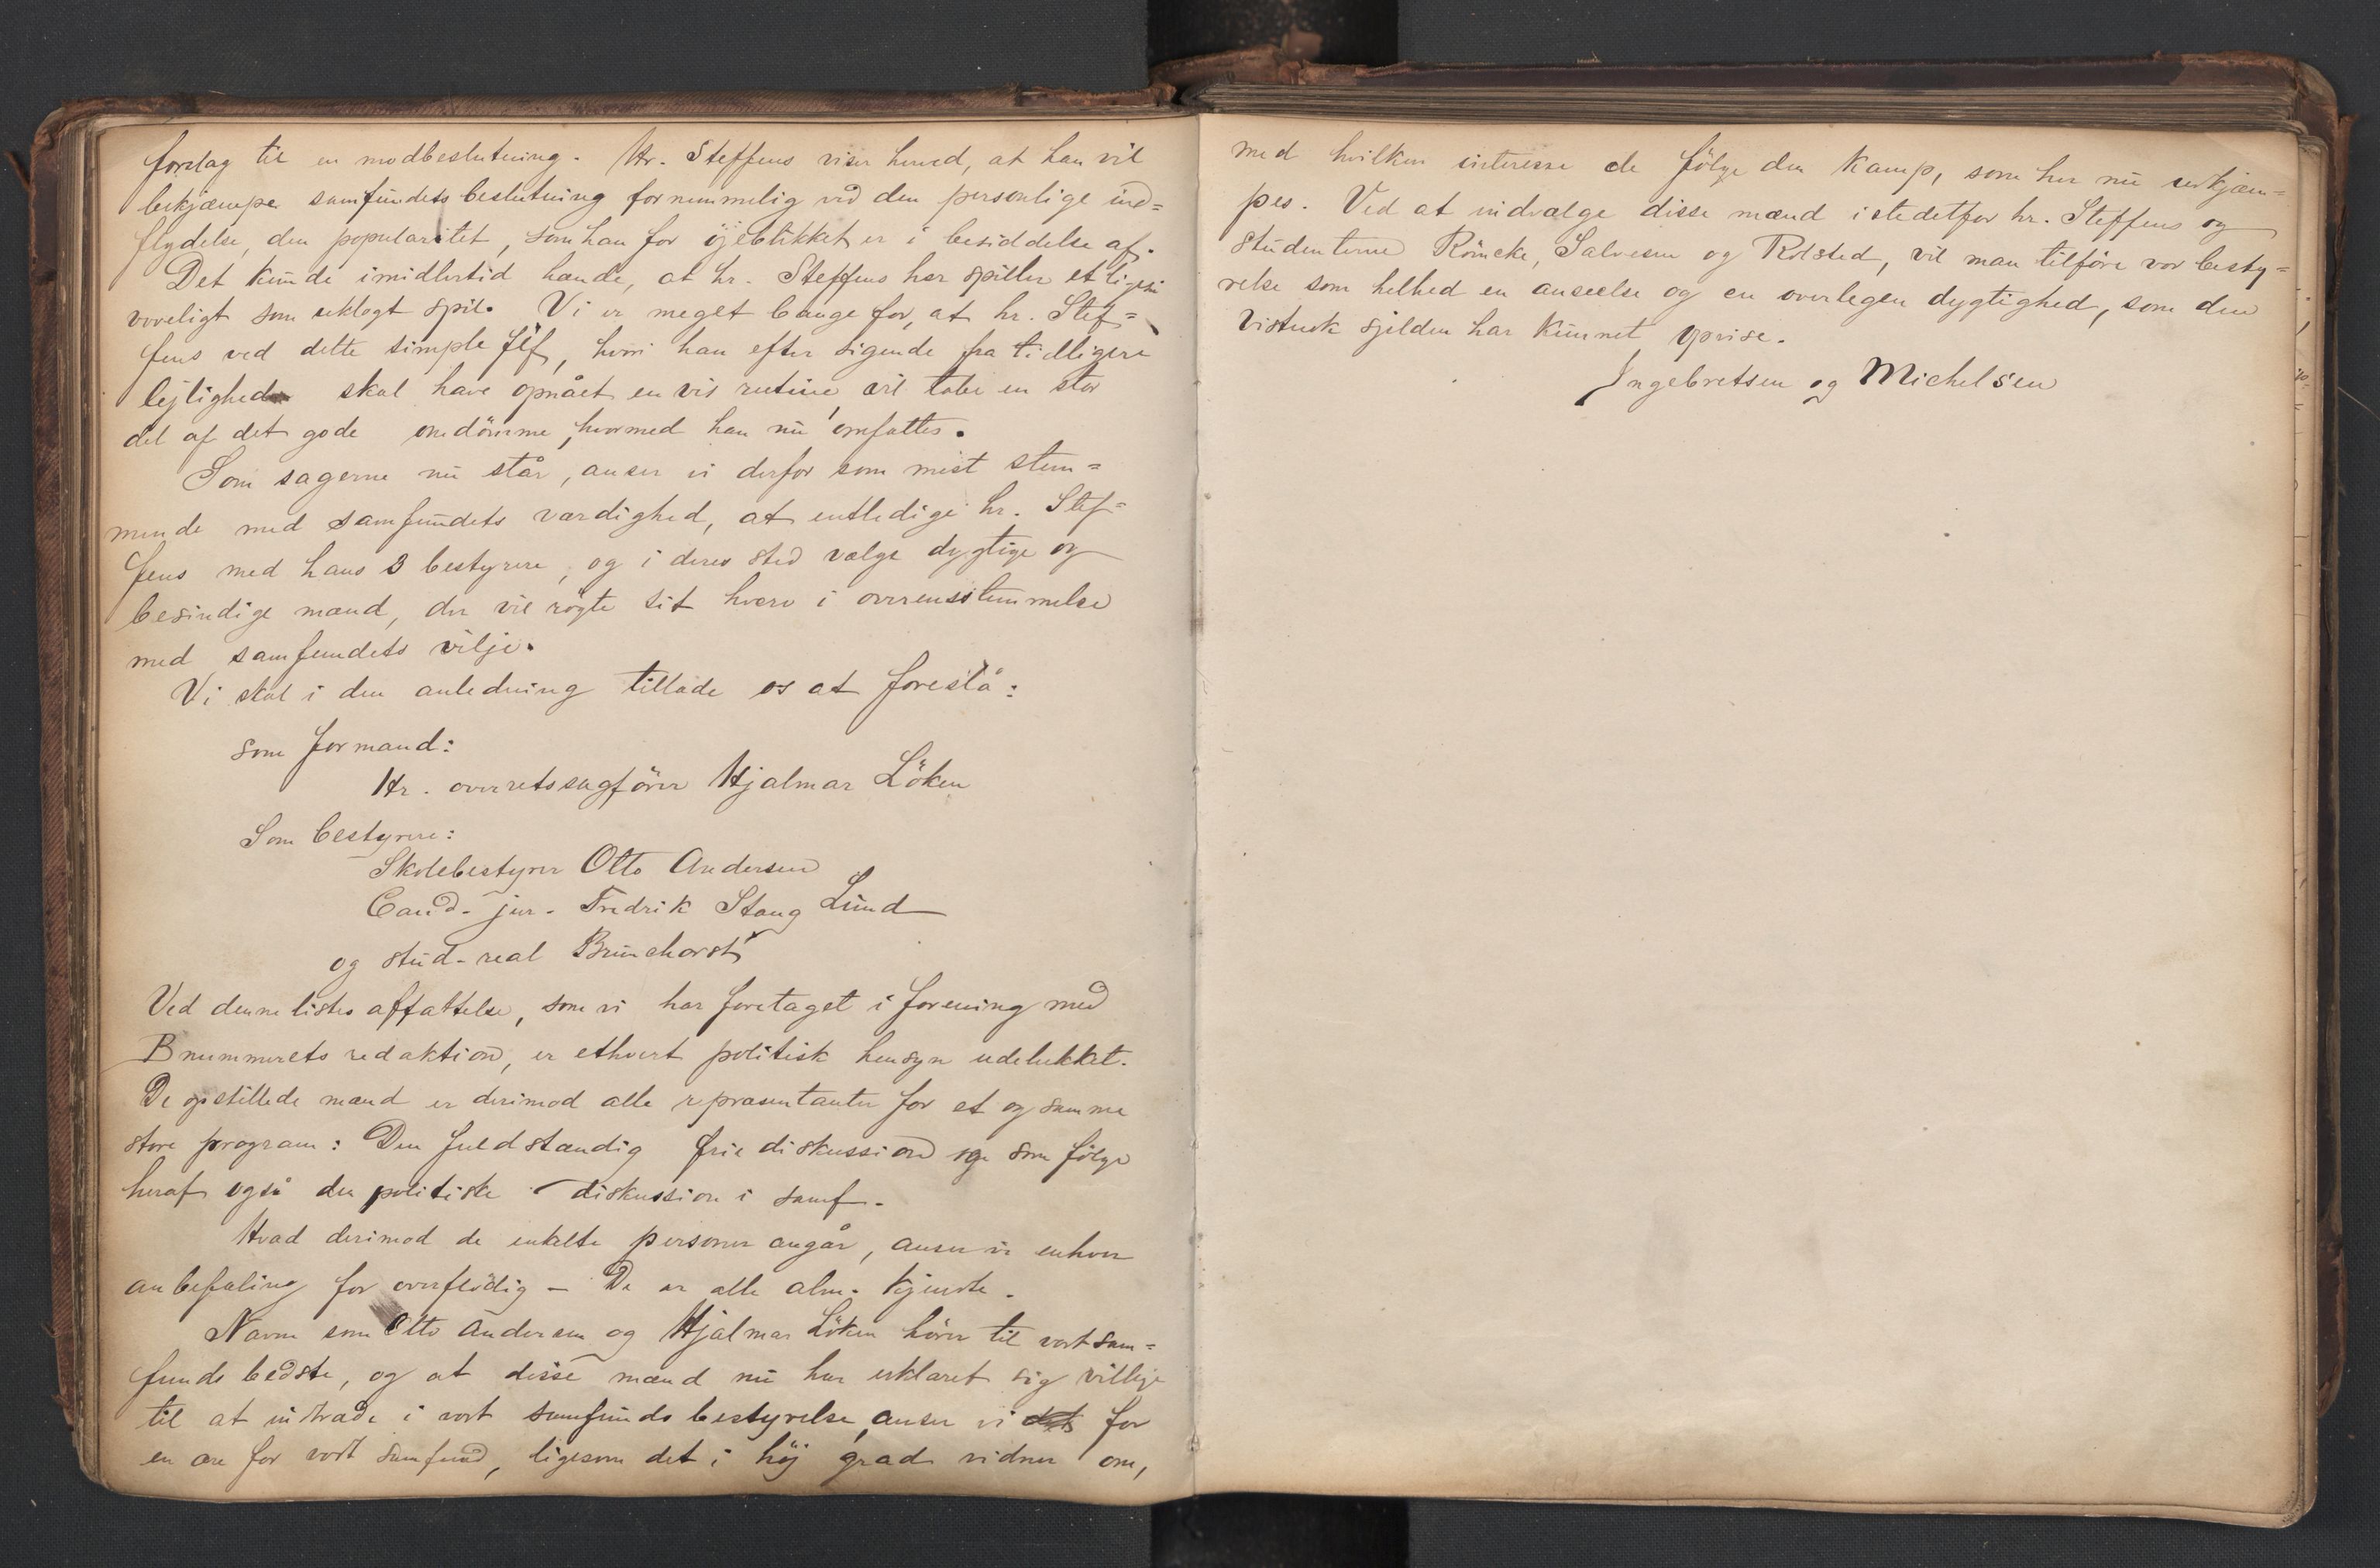 forslag til en modbeslutning. Hr. Steffens viser herved, at han vil
bekjæmpe samfundets beslutning fornemmelig ved den personlige ind=
flydelse, den popularitet, som han for øjeblikket er i besiddelse af.
Det kunde imidlertid hænde, at hr. Steffens her spiller et ligeså
voveligt som uklogt spil. Vi er meget bange for, at hr. Stef=
fens ved dette simple , hvori han efter sigende fra tidligere
lejligheder skal have opnået en vis rutine, vil tabe en stor
del af det gode omdömme, hvormed han nu omfattes.
Som sagerne nu står, anser vi derfor som mest stem=
mende med samfundets værdighed, at entledige hr. Stef=
fens med hans 3 bestyrere, og i deres sted vælge dygtige og
besindige mænd, der vil røgte sit hverv i overensstemmelse
med samfundets vilje.
Vi skal i den anledning tillade os at foreslå:
som formand:
Hr. overretssagförer Hjalmar Löken
Som bestyrere:
Skolebestyrer Otto Andersen
Cand. jur. Fredrik Stang Lund
og stud. real Brunchorst
Ved denne listes affattelse, som vi har foretaget i forening med
B nummerets redaktion, er ethvert politisk hensyn udelukket.
De opstillede mænd er derimod alle repræsentanter for et og samme
store program: Den fuldstændig frie diskussion og som fölge
heraf også den politiske diskussion i samf.
Hvad derimod de enkelte personer angår, anser vi enhver
anbefaling for overflödig – De er alle alm. kjendte.
Navne som Otto Andersen og Hjalmar Löken hörer til vort sam=
funds bedste, og at disse mænd nu har erklæret sig villige
til at indtræde i vort samfunds bestyrelse, anser vi for
en ære for vort samfund, ligesom det i höj grad vidner om,
med hvilken interesse de fölge den kamp, som her nu udkjæm=
pes. Ved at indvælge disse mænd istedetfor hr. Steffens og
studenterne Römcke, Salvesen og Rolsted, vil man tilföre vor besty=
relse som helhed en anseelse og en overlegen dygtighed, som den
vistnok sjelden har kunnet opvise.
Ingebretsen og Michelsen